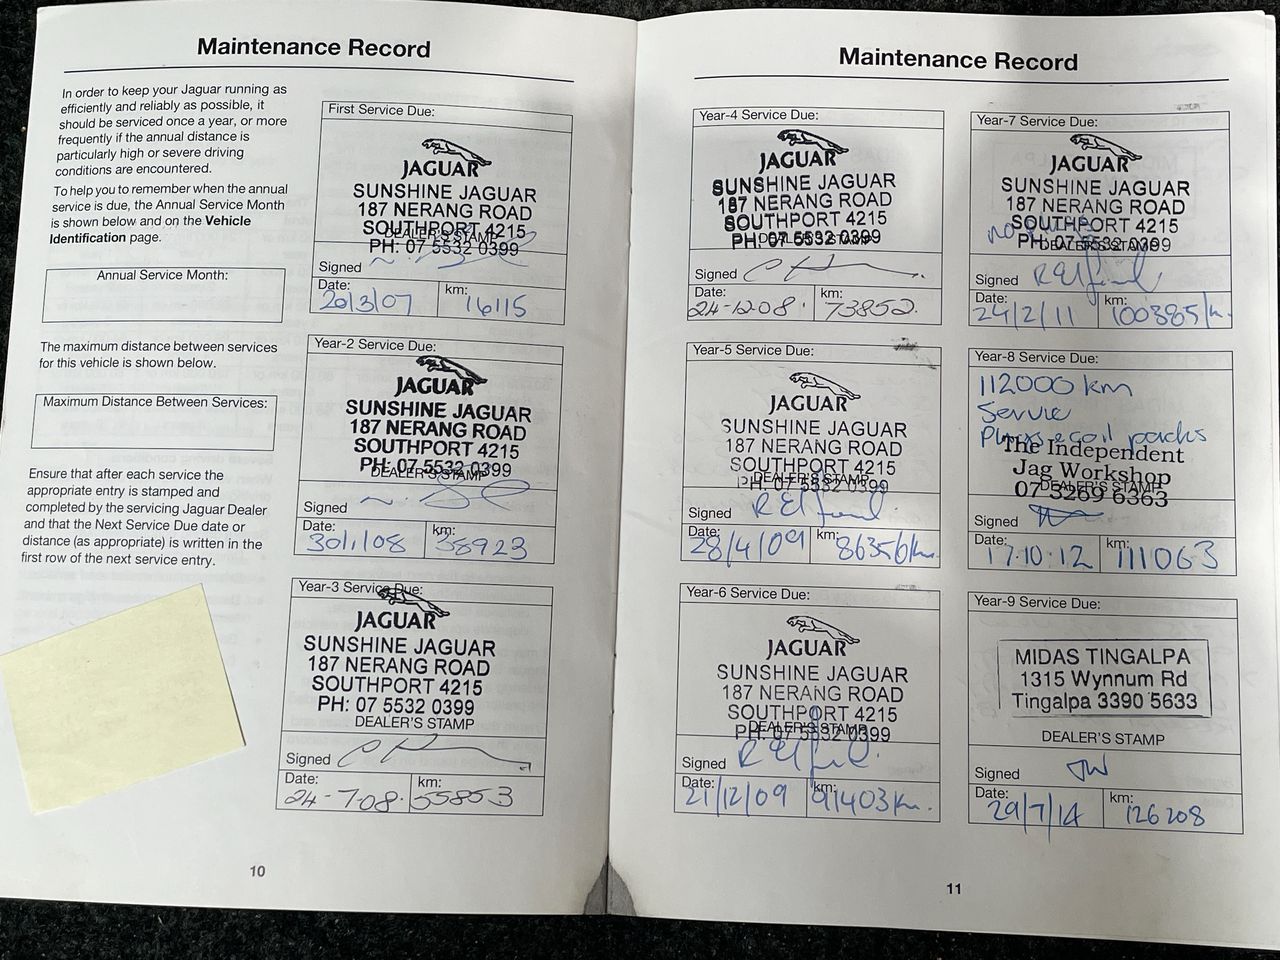 Maintenance Record
In order to keep your Jaguar running as
efficiently and reliably as possible, it
should be serviced once a year, or more
frequently if the annual distance is
particularly high or severe driving
conditions are encountered.
To help you to remember when the annual
service is due, the Annual Service Month
is shown below and on the Vehicle
Identification page.
Annual Service Month:
The maximum distance between services
for this vehicle is shown below.
Maximum Distance Between Services:
Ensure that after each service the
appropriate entry is stamped and
completed by the servicing Jaguar Dealer
and that the Next Service Due date or
distance (as appropriate) is written in the
first row of the next service entry.
First Service Due:
JAGUAR
SUNSHINE JAGUAR
187 NERANG ROAD
SOUTHPORT 4215
DEALER'S STAMP
PH: 07 5532 0399
Signed
Date: km:
20/3/07 16115
Year-2 Service Due:
JAGUAR
SUNSHINE JAGUAR
187 NERANG ROAD
SOUTHPORT 4215
PH: 07 5532 0399
DEALER'S STAMP
Signed
Date: km:
30/1/08 38923
Year-3 Service Due:
JAGUAR
SUNSHINE JAGUAR
187 NERANG ROAD
SOUTHPORT 4215
PH: 07 5532 0399
DEALER'S STAMP
Signed
Date: km:
24-7-08. 55853
10
Maintenance Record
Year-4 Service Due:
JAGUAR
SUNSHINE JAGUAR
187 NERANG ROAD
SOUTHPORT 4215
PH: 07 5532 0399
DEALER'S STAMP
Signed
Date: km:
24-12-08. 73852.
Year-5 Service Due:
JAGUAR
SUNSHINE JAGUAR
187 NERANG ROAD
SOUTHPORT 4215
DEALER'S STAMP
PH: 07 5532 0399
Signed
Date: km:
28/4/09 86356/km.
Year-6 Service Due:
JAGUAR
SUNSHINE JAGUAR
187 NERANG ROAD
SOUTHPORT 4215
DEALER'S STAMP
PH: 07 5532 0399
Signed
Date: km:
21/12/09 91403km.
Year-7 Service Due:
JAGUAR
SUNSHINE JAGUAR
187 NERANG ROAD
SOUTHPORT 4215
PH: 07 5532 0399
DEALER'S STAMP
Signed
Date: km:
24/2/11 100385/km.
Year-8 Service Due:
112000 km
Service
Plugs & coil packs
The Independent
Jag Workshop
DEALER'S STAMP
07 3269 6363
Signed
Date: km:
17.10.12 111063
Year-9 Service Due:
MIDAS TINGALPA
1315 Wynnum Rd
Tingalpa 3390 5633
DEALER'S STAMP
Signed JW
Date: km:
29/7/14 126208
11